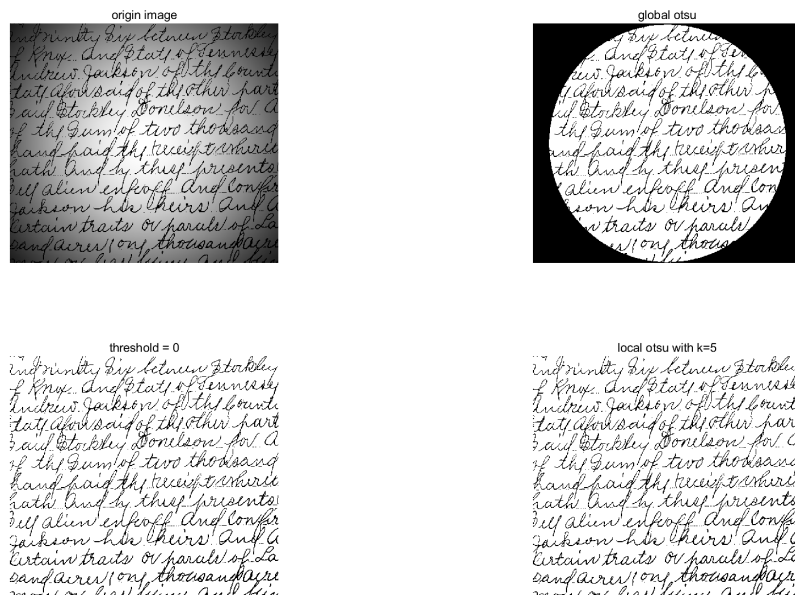 origin image
global otsu
ind ninety Six between Stockley
of Knox And State of Tennessee
Andrew Jackson of the Count
tate aforesaid of the other part
aid Stockley Donelson for A
of the Sum of two thousand
hand paid the receipt
hath And by these presents
ell alien enfeoff And Confir
Jackson his heirs And A
Certain traits or parcels of La
sand Acres (ong thousand Acre
ninety Six between
And State of Tenn
Jackson of the
aforesaid of the other
Stockley Donelson for
the Sum of two thousand
hand paid the receipt
hath And by these presents
alien enfeoff And Con
son his heirs And
traits or parcels
ong thous
threshold = 0
local otsu with k=5
ind ninety Six between Stockley
of Knox And State of Tennessee
Andrew Jackson of the Count
tate aforesaid of the other part
aid Stockley Donelson for A
of the Sum of two thousand
hand paid the receipt
hath And by these presents
ell alien enfeoff And Confir
Jackson his heirs And A
Certain traits or parcels of La
sand Acres (ong thousand Acre
ind ninety Six between Stockley
of Knox And State of Tennessee
Andrew Jackson of the Count
tate aforesaid of the other part
aid Stockley Donelson for A
of the Sum of two thousand
hand paid the receipt
hath And by these presents
ell alien enfeoff And Confir
Jackson his heirs And A
Certain traits or parcels of La
sand Acres (ong thousand Acre